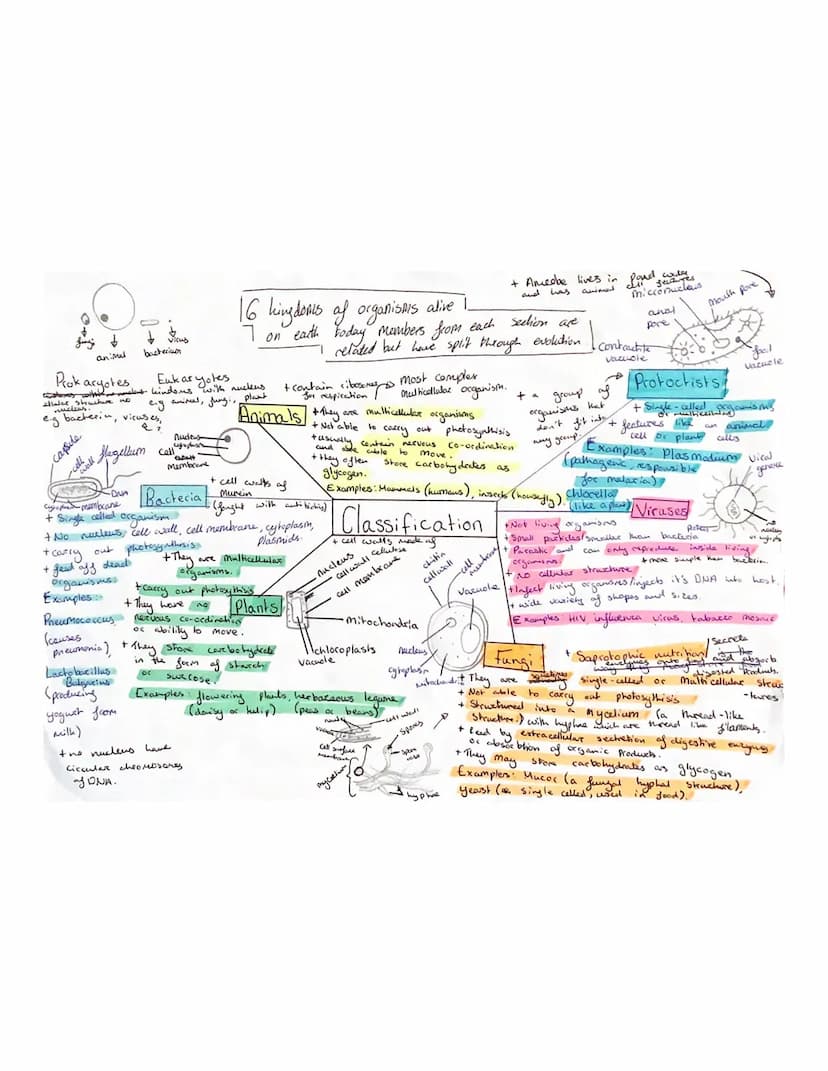 6 kingdoms of organisms alive
on earth today members from each section are
related but have split through evolution
fungi
animal
bacterium
virus
Prokaryotes
cellular structure no
nucleus.
e.g bacteria, viruses,
Eukaryotes
kindoms with nucleus
e.g animal, fungi, plant
Animals
+ contain ribosomes
for respiration
most complex
multicellular organism.
+They are multicellular organisms
+ Not able to carry out photosythsis
+ usually contain nervous co-ordination
and are able to move.
+ they often store carbohydrates as
glycogen.
Examples: Mammels (humans), insects (housefly).
Nucleus
cytoplasm
Cell
membrane
+ Amoebe lives in pond water
and has animal cell features
micronucleus
anal
pore
mouth pore
contractile
vacuole
food
vacuole
Protoctists
+ a group of
organisms that
don't fit into
any group.
+ single-celled organisms
or multicellular
+ features like an animal
cell or plant cells
Examples: Plasmodium
(pathogenic, responsible
for malaria)
Chlorella
(like a plant)
Classification
Bacteria
capsule
cell wall
flagellum
DNA
membrane
+ cell walls of
murein
(fought with antibiotics)
+ Single celled organism
+No nucleus, cell wall, cell membrane, cytoplasm,
Plasmids.
+carry out photosythsis
+ feed off dead
organisms.
Examples:
Pneumococcus
(causes
pneumonia),
Lactobacillus
Bulgaricus
(producing
yogurt from
milk)
+ no nucleus have
circular chromosomes
of DNA.
Plants
+ cell walls made of
cellulose
nucleus
cell wall
cell membrane
mitochondria
chloroplasts
vacuole
+They are multicellular
organisms.
+carry out photosythsis
+They have no
nervous co-ordination
or ability to move.
+ They store carbohydrate
in the form of starch
or sucrose.
Examples: flowering plants, herbaceous legume
(daisy or tulip) (peas or beans)
Viruses
viral
genome
Protein
no
nucleus
or cytoplasm
+Not living organisms
+ Small particles/smaller than bacteria
+ Parasitic and can only reproduce inside living
organisms
+more simple than bacteria
+ NO cellular structure
+Infect living organisms/injects it's DNA into host.
+ wide variety of shapes and sizes.
Examples HIV influenza virus, tobacco mosaic
Fungi
chitin
cell wall
cell
membrane
vacuole
nucleus
cytoplasm
mitochondria
+ Saprotophic nutrition
secrete
enzymes
and absorb
digested products.
+ They are single-celled or multicellular struc
-tures
+ Not able to carry out photosythisis
+ Structured into a Mycelium (a thread-like
structure.) with hyphae which are thread like filaments.
+ feed by extracellular secretion of digestive enzymes
or absorbtion of organic products.
+They may store carbohydrates as glycogen
Examples: Mucor (a fungal hyphal structure).
yeast (a single celled, used in food).
cell wall
cell surface
membrane
spores
spore
mycelium
hyphae